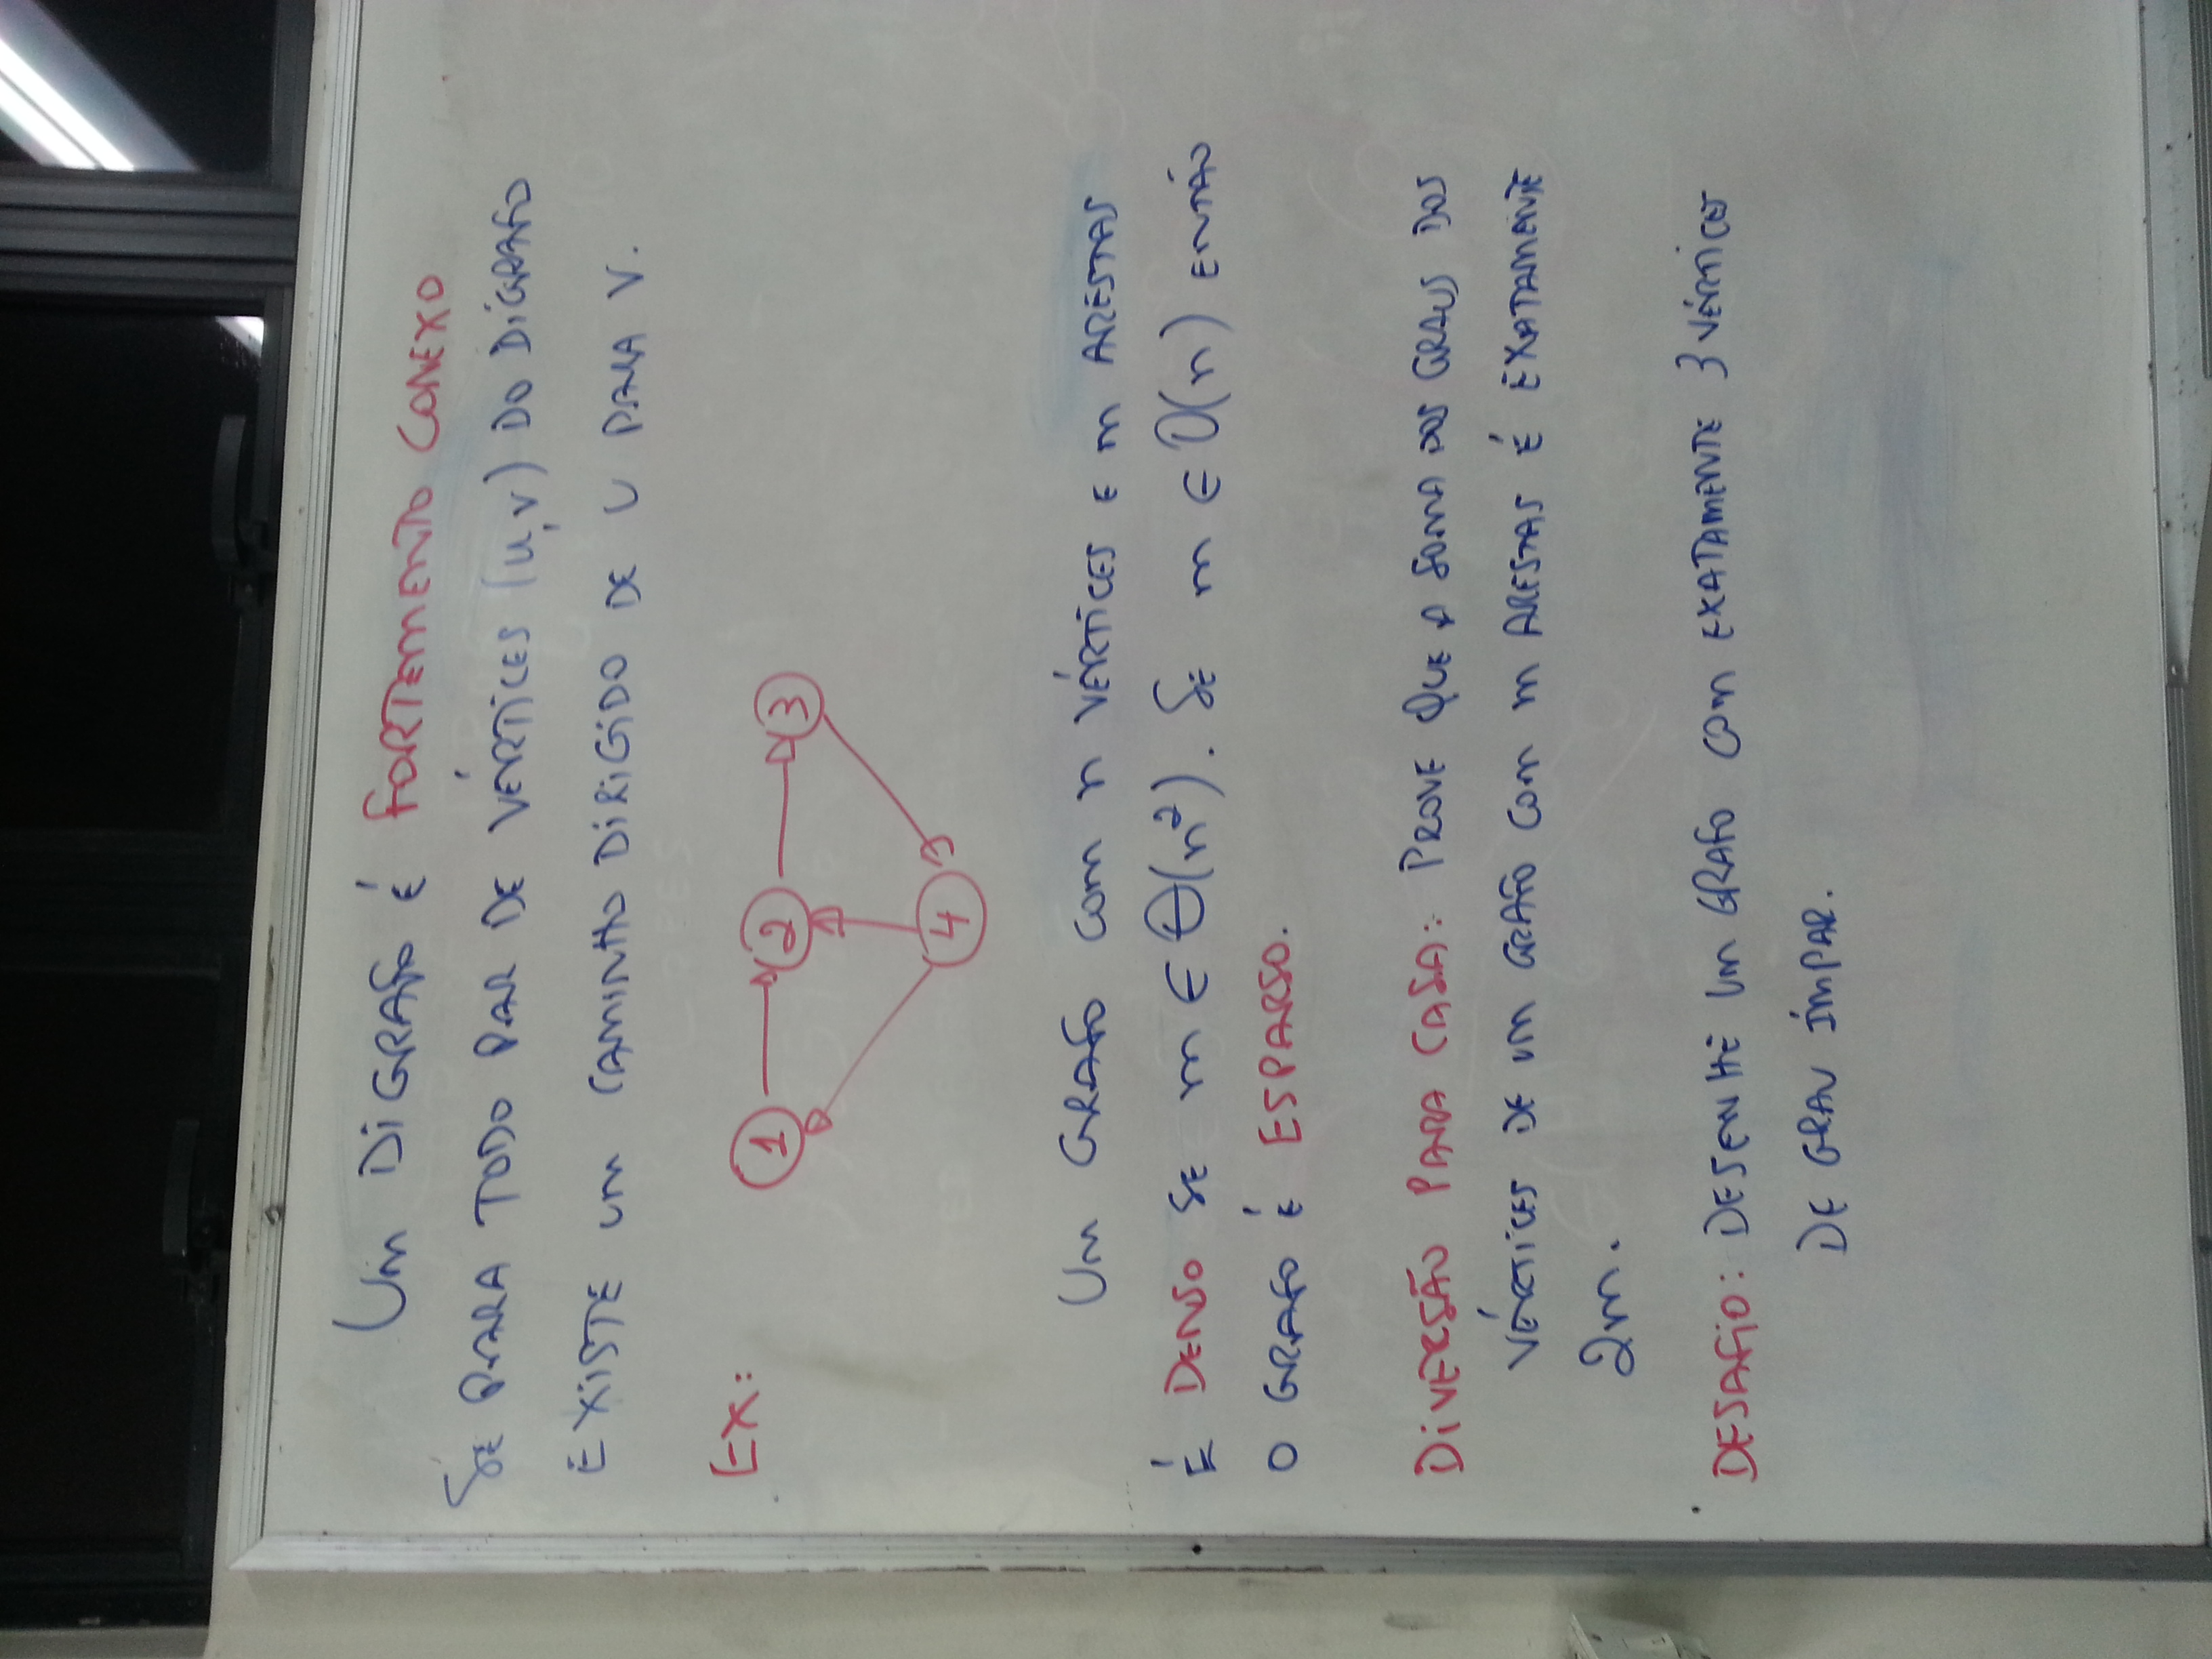 UM DIGRAFO É FORTEMENTO CONEXO
SE PARA TODO PAR DE VÉRTICES (u,v) DO DIGRAFO
EXISTE UM CAMINHO DIRIGIDO DE U PARA V.
EX:
1 2 3
4
UM GRAFO COM n VÉRTICES E m ARESTAS
É DENSO SE m ∈ Θ(n²). SE m ∈ O(n) ENTÃO
O GRAFO É ESPARSO.
DIVERSÃO PARA CASA: PROVE QUE A SOMA DOS GRAUS DOS
VÉRTICES DE UM GRAFO COM m ARESTAS É EXATAMENTE
2m.
DESAFIO: DESENHE UM GRAFO COM EXATAMENTE 3 VÉRTICES
DE GRAU ÍMPAR.